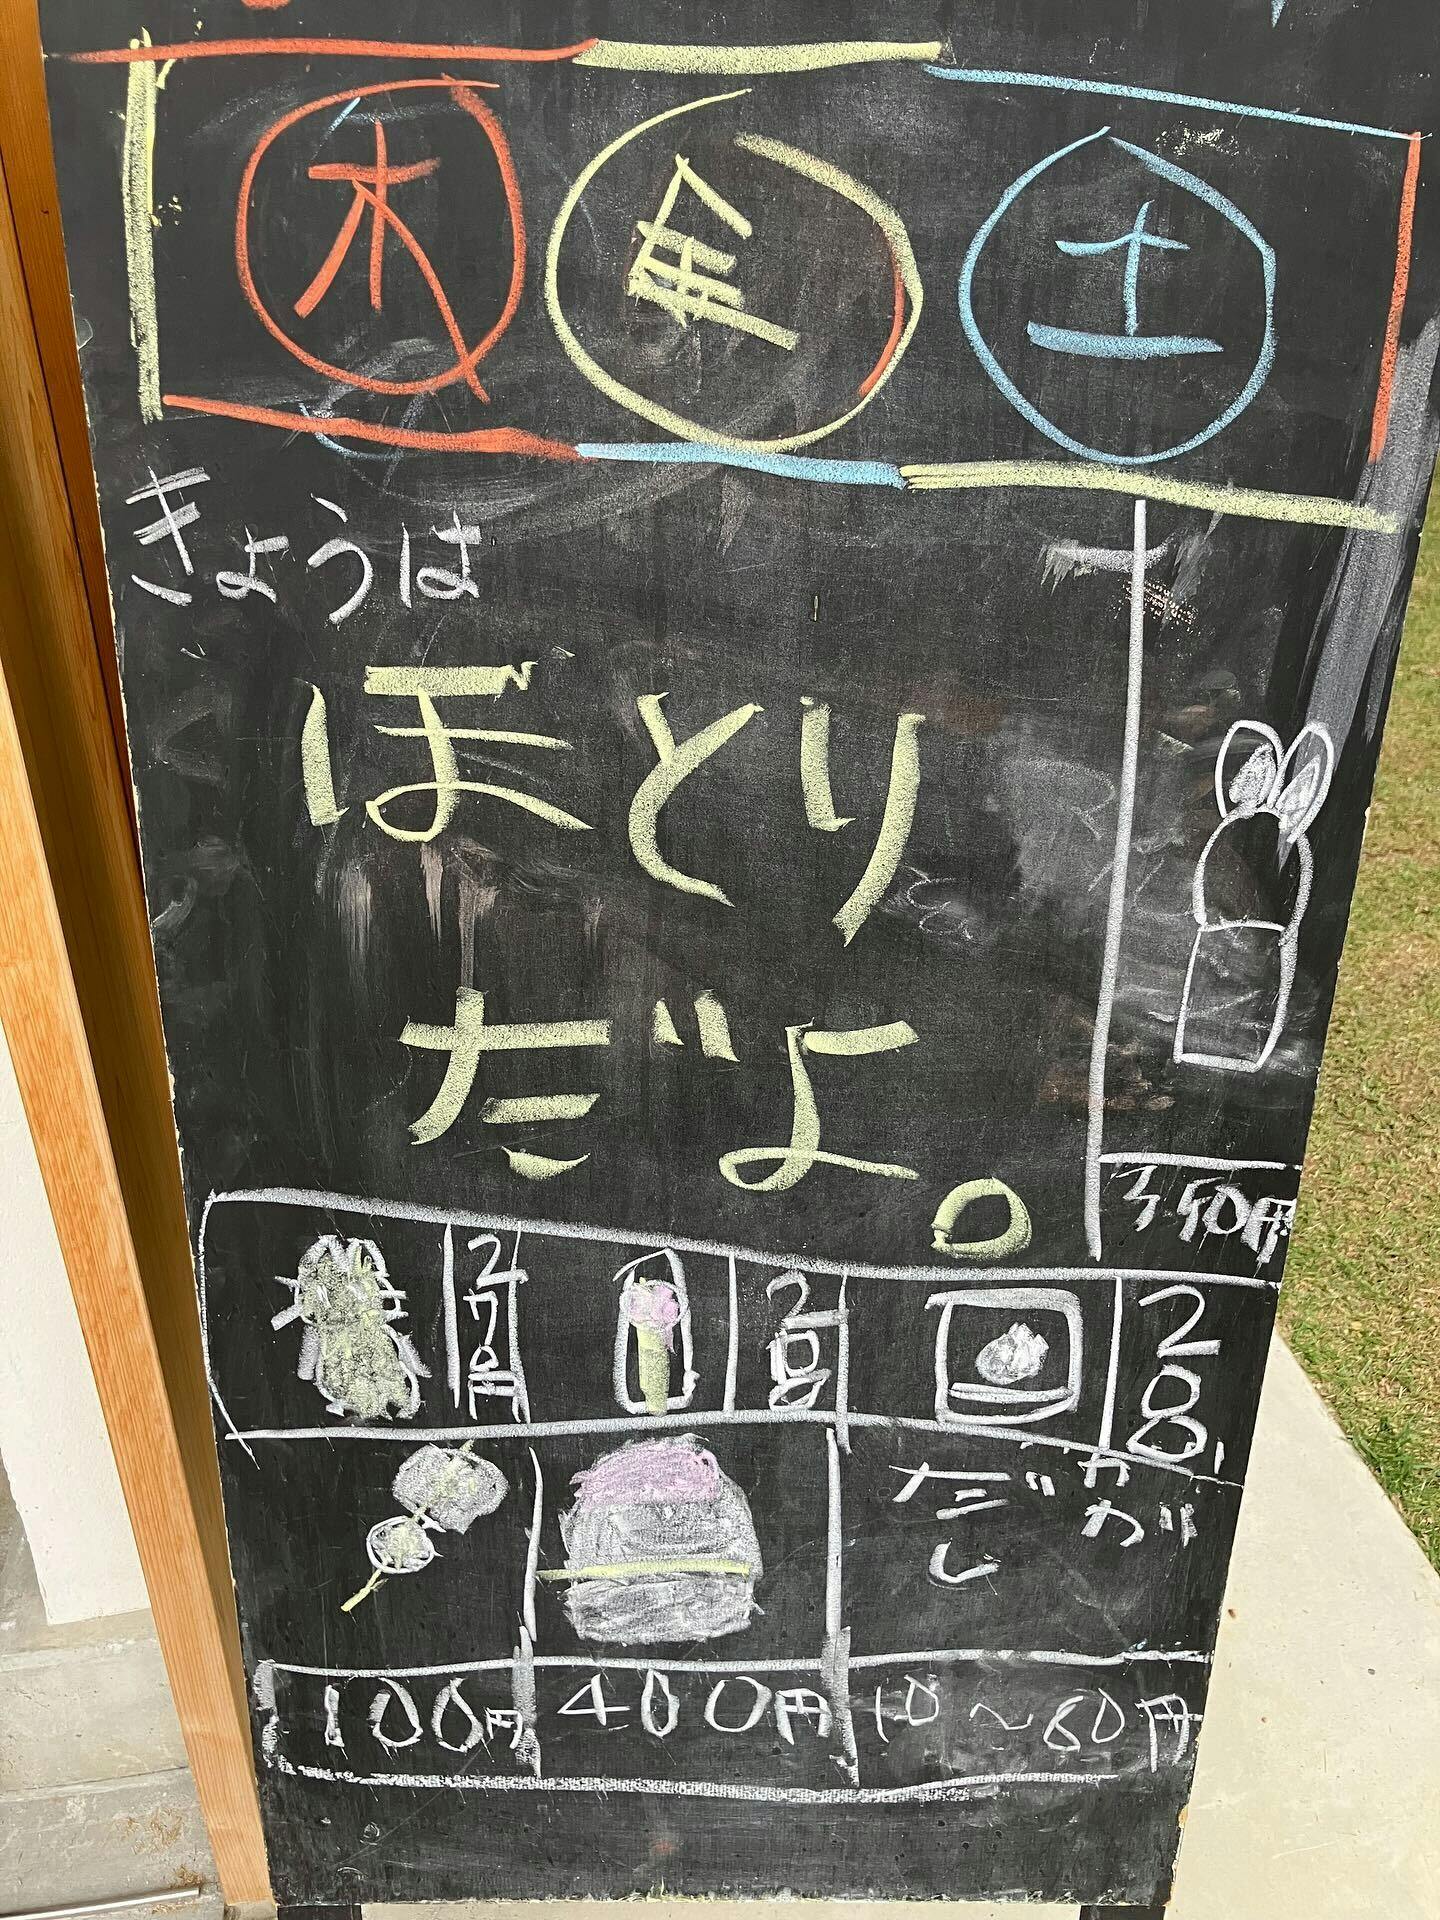 木 金 土
きょうは
ぼとり
だよ。
350円
270円
200
200
だがし
100円 400円 10~80円